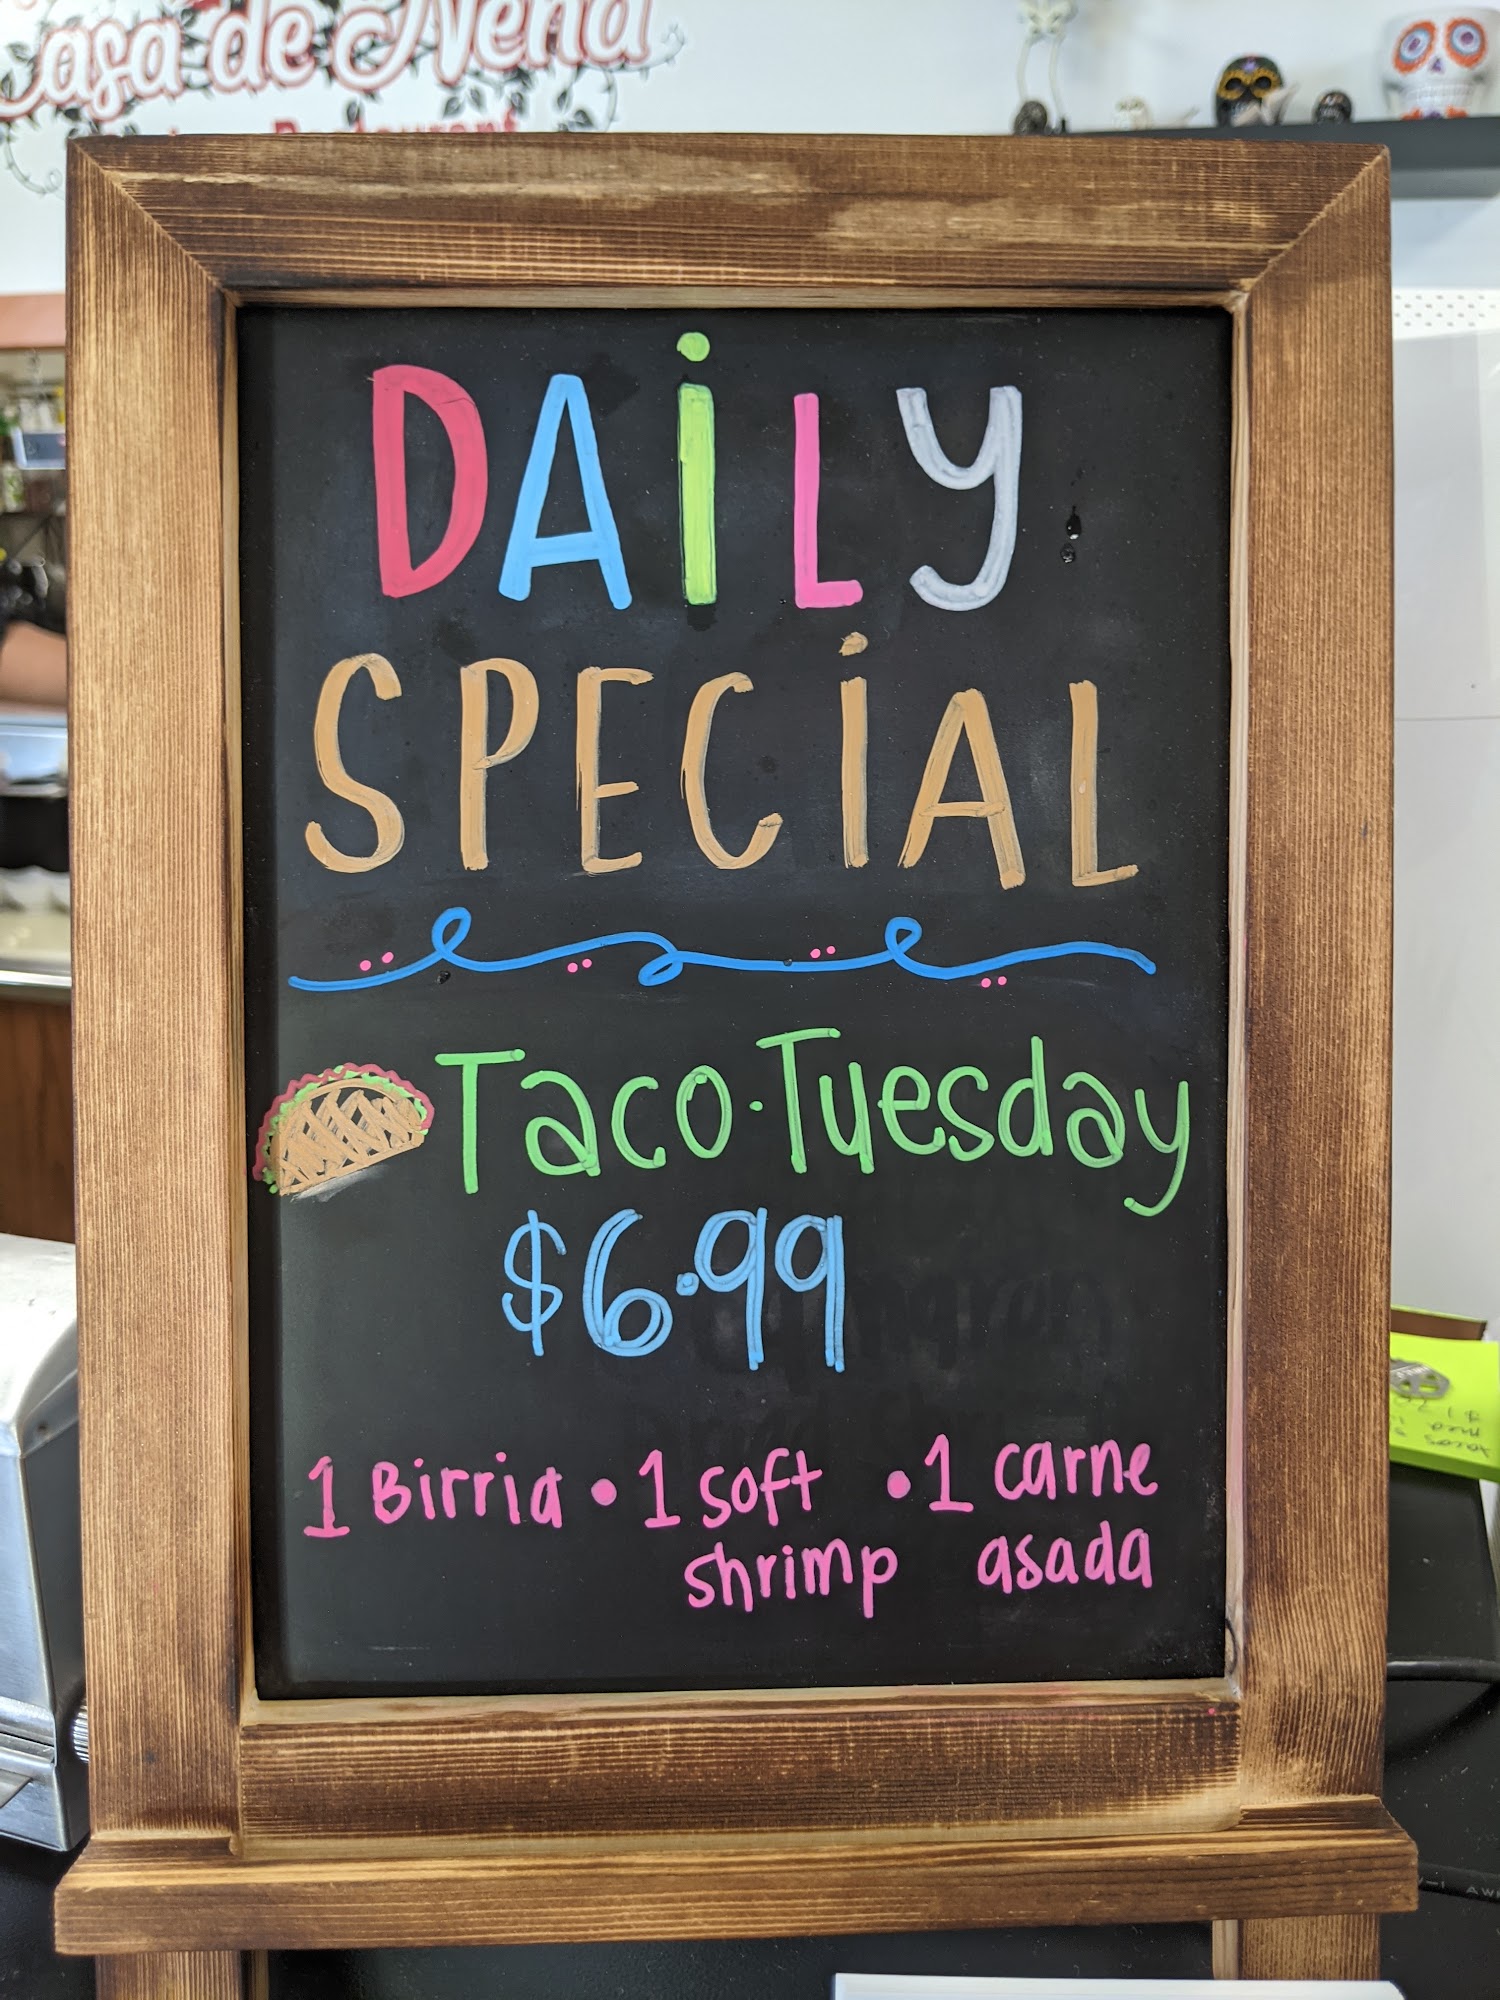 Casa de Nena
Restaurant
DAiLy
SPECiAL
Taco·Tuesday
$6.99
1 Birria • 1 soft shrimp • 1 carne asada